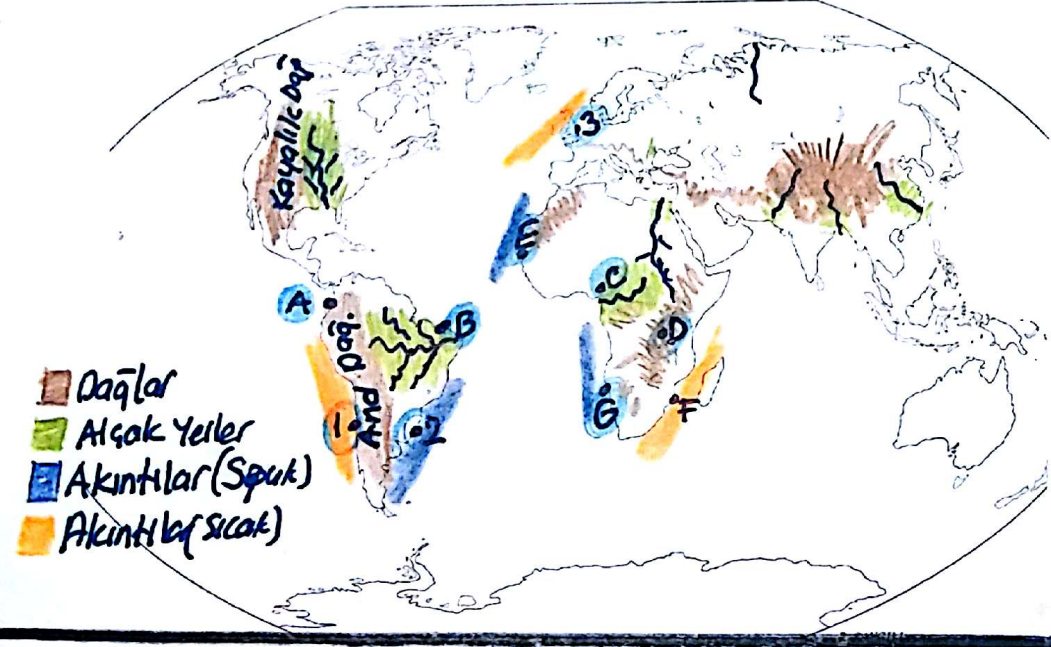 Kayalık Dağ
3
E
C
A
B
And Dağ.
D
1
2
G
F
Dağlar
Alçak Yerler
Akıntılar (Soğuk)
Akıntılar (sıcak)